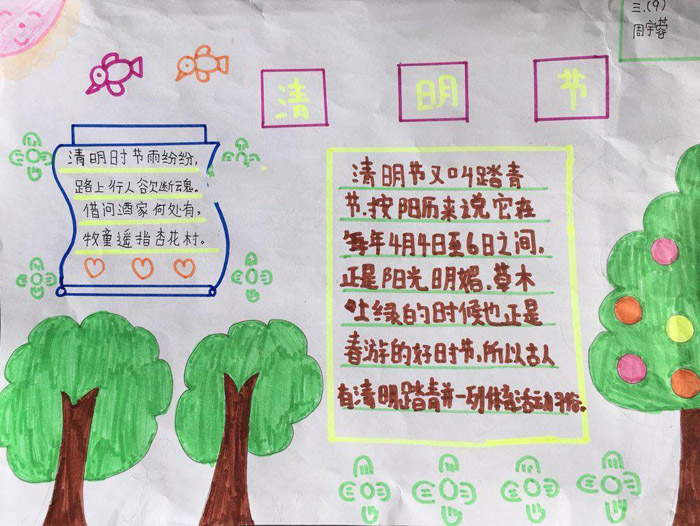 三.(9)
周宇蓉
清 明 节
清明时节雨纷纷,
路上行人欲断魂。
借问酒家何处有,
牧童遥指杏花村。
清明节又叫踏青
节.按阳历来说它在
每年4月4日至6日之间.
正是阳光明媚.草木
吐绿的时候也正是
春游的好时节.所以古人
有清明踏青并一列体育活动习俗。